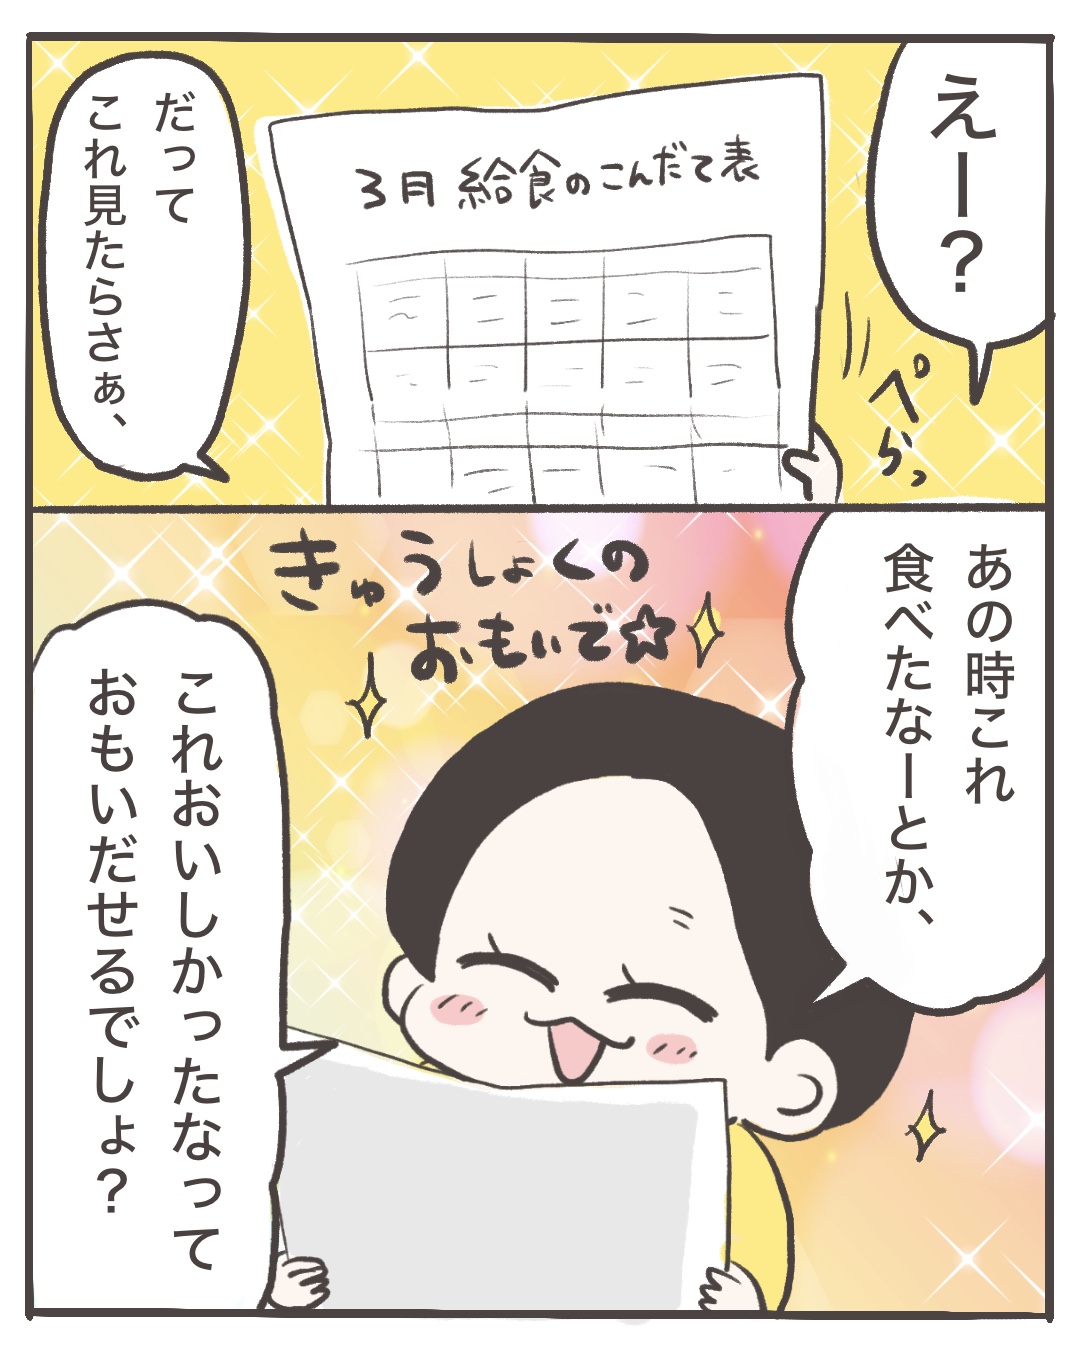 えー?
3月 給食のこんだて表
ぺらっ
だって
これ見たらさぁ、
あの時これ
食べたなーとか、
きゅうしょくの
おもいで☆
これおいしかったなって
おもいだせるでしょ?